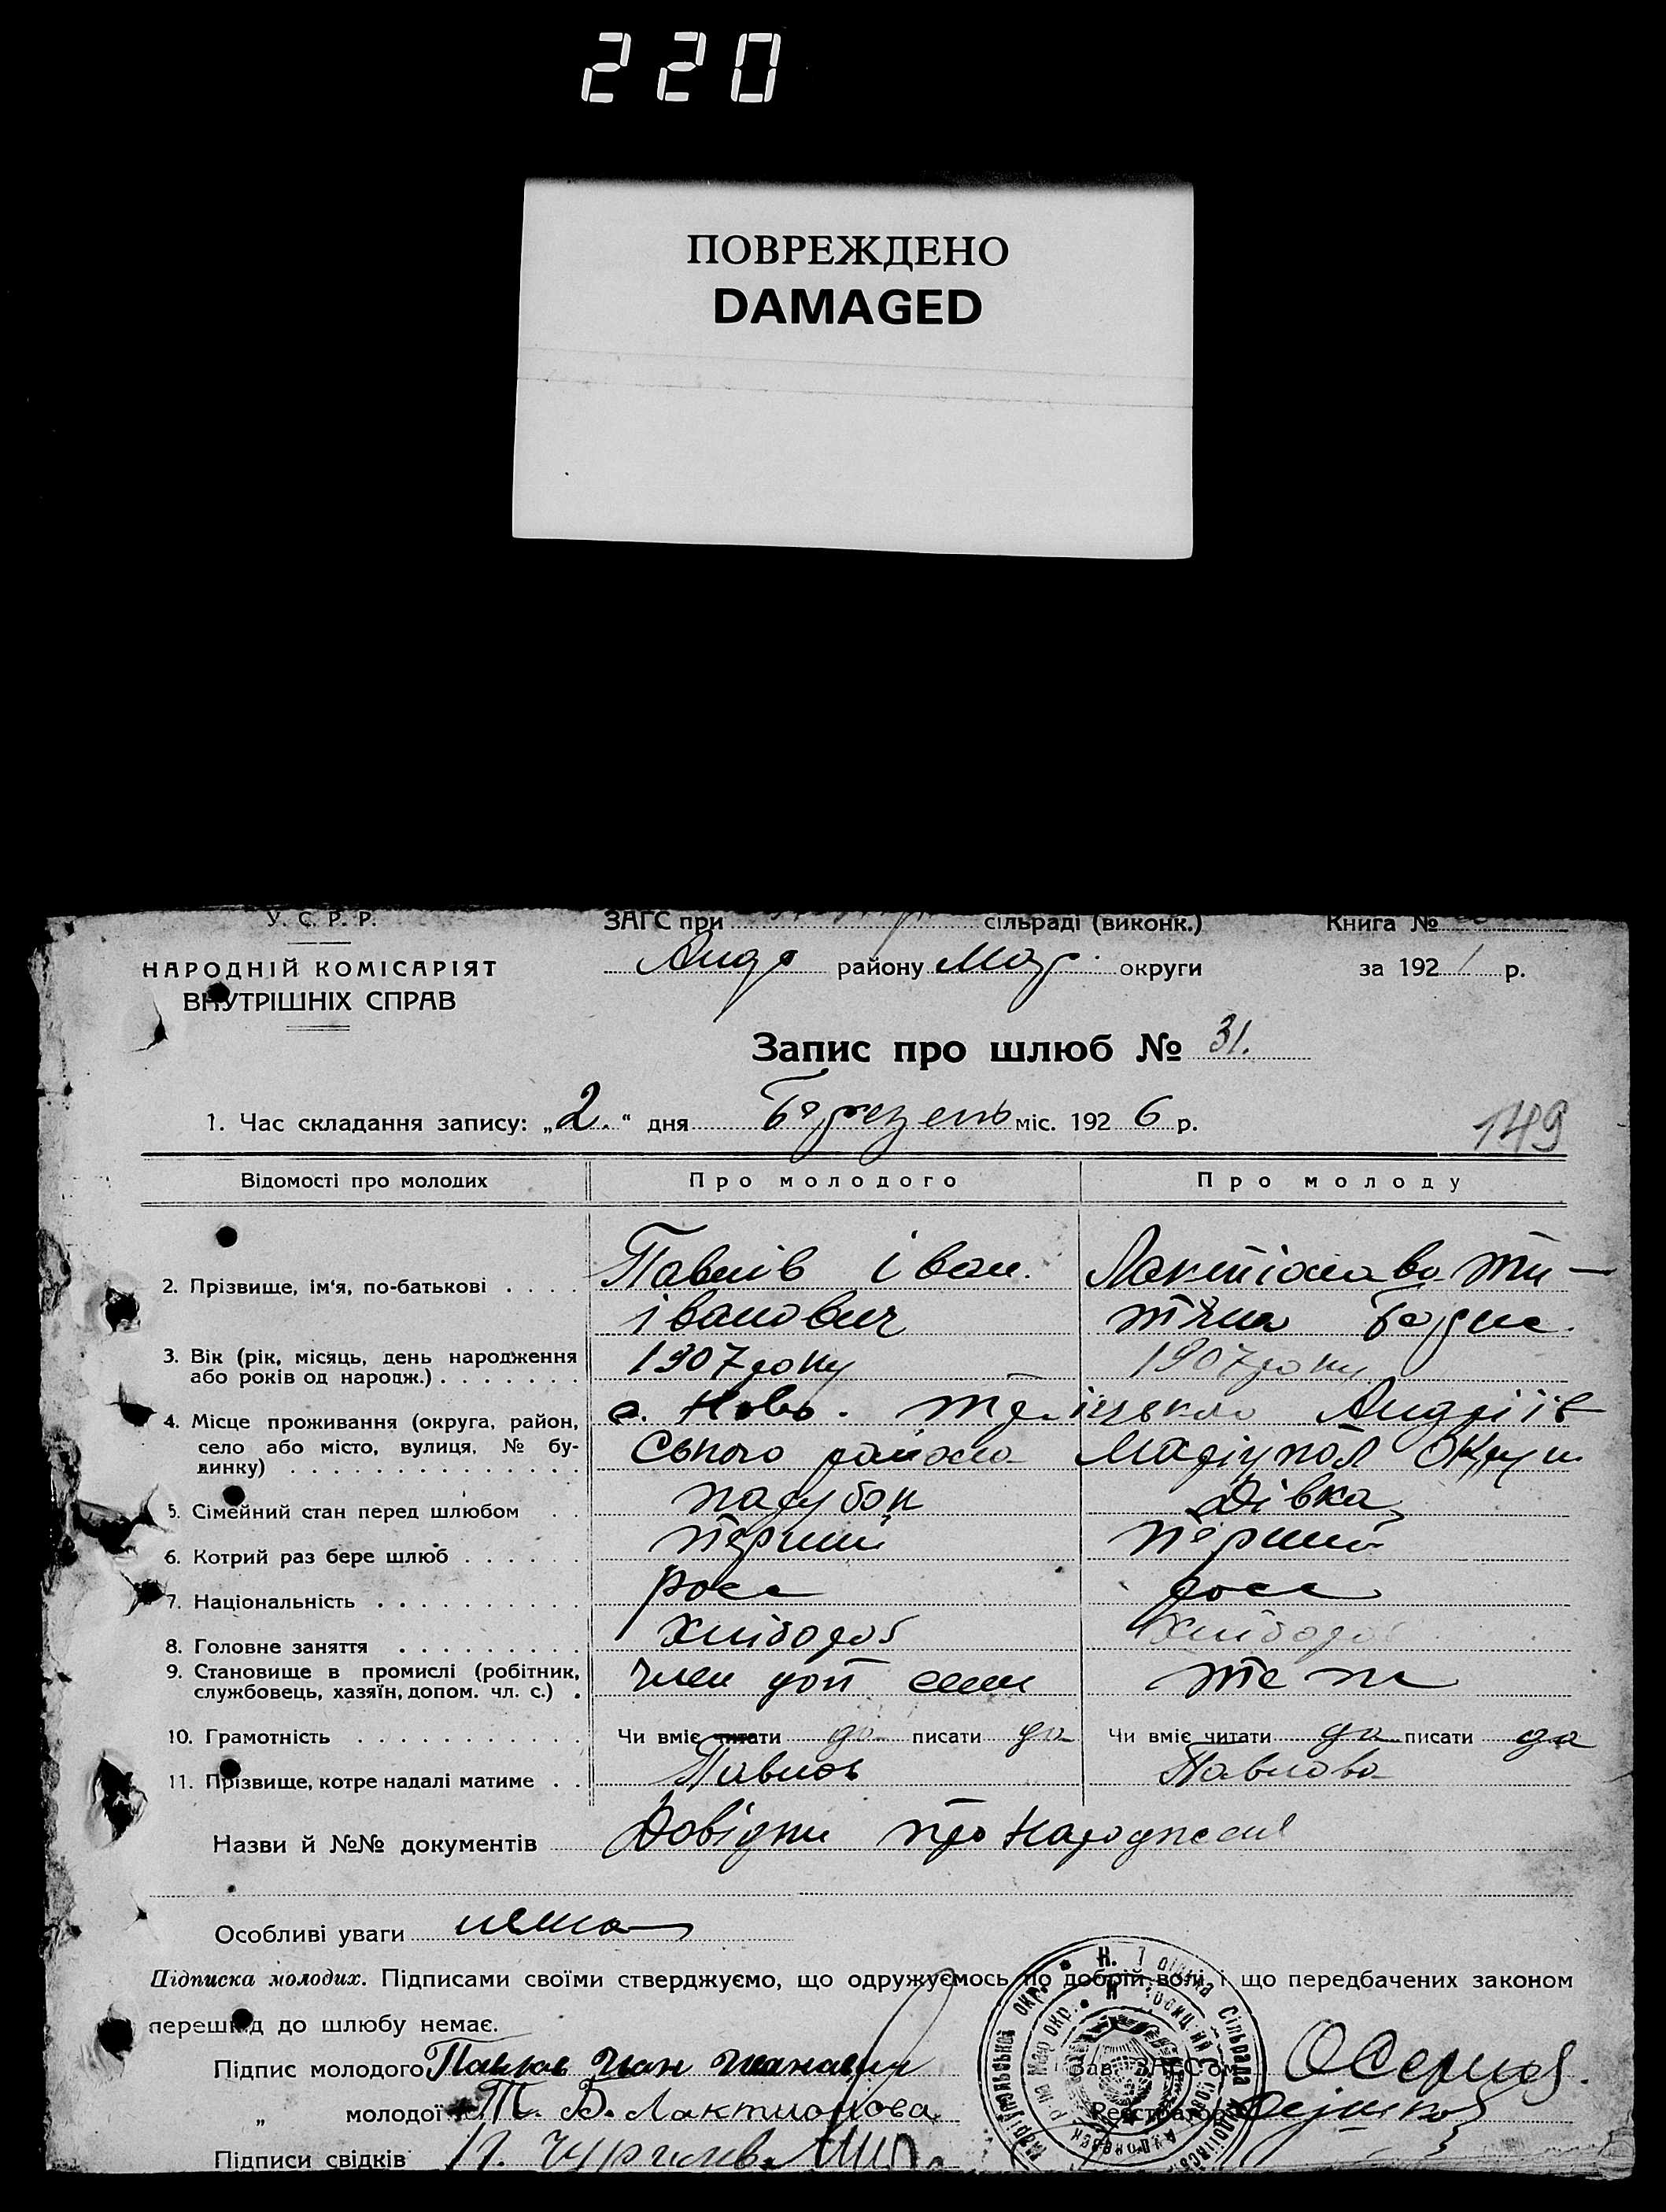 220
ПОВРЕЖДЕНО
DAMAGED
У. С. Р. Р. ЗАГС при сільраді (виконк.) Книга №
НАРОДНІЙ КОМІСАРІЯТ
ВНУТРІШНІХ СПРАВ
Андр району Мар. округи за 192 р.
Запис про шлюб № 31.
1. Час складання запису: „2.“ дня Березень міс. 1926 р.
149
Відомості про молодих Про молодого Про молоду
2. Прізвище, ім'я, по-батькові Павлів Іван. Лактіонава
іванович
3. Вік (рік, місяць, день народження або років од народж.) 1907 року 1907 року
4. Місце проживання (округа, район, село або місто, вулиця, № будинку) с. Ново. Андріїв
ського района Маріупол Окруи
5. Сімейний стан перед шлюбом парубок Дівка
6. Котрий раз бере шлюб перший перший
7. Національність росс росс
8. Головне заняття Хлібороб Хлібороб
9. Становище в промислі (робітник, службовець, хазяїн, допом. чл. с.) член доп
10. Грамотність Чи вміє читати да писати да Чи вміє читати да писати да
11. Прізвище, котре надалі матиме Павлов Павлова
Назви й №№ документів Довідки про народження
Особливі уваги нема
Підписка молодих. Підписами своїми стверджуємо, що одружуємось по добрій волі і що передбачених законом
перешкод до шлюбу немає.
Підпис молодого Павлов Иван Иванович Зав. ЗАГС'ом
„ молодої Т. Б. Лактионова Реєстратор
Підписи свідків